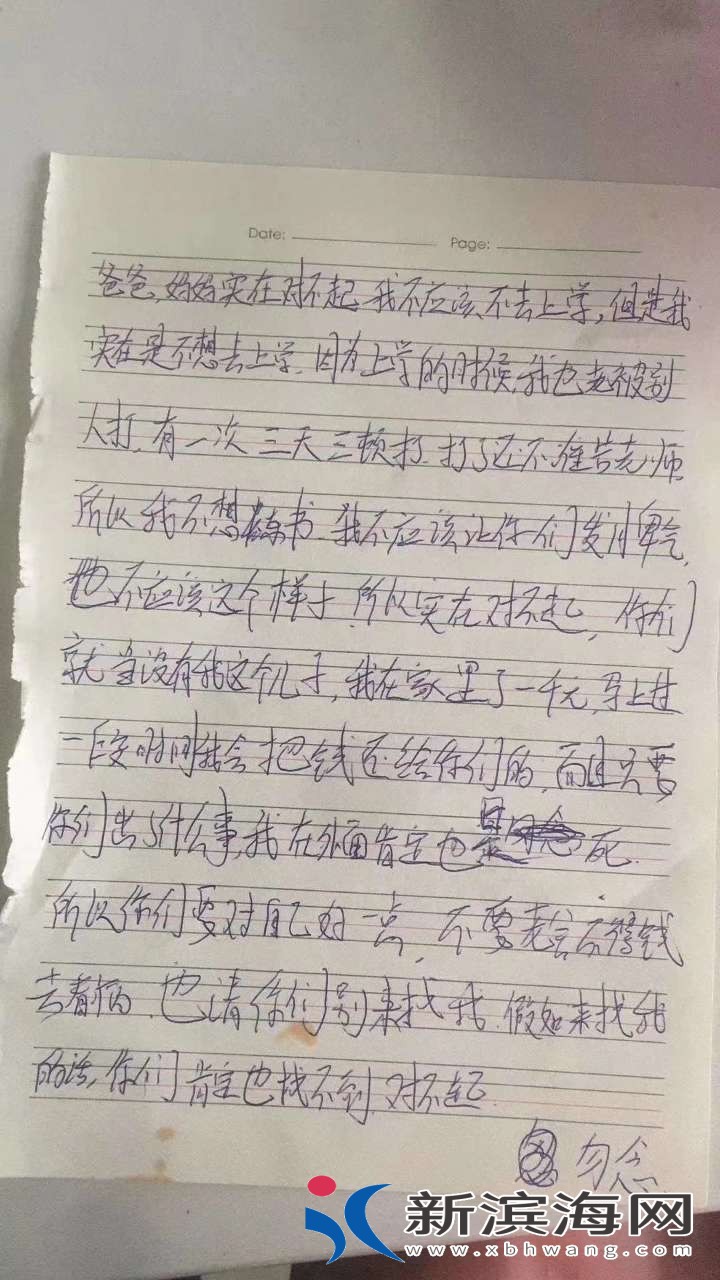 Date: Page:
爸爸,妈妈实在对不起,我不应该不去上学,但是我
实在是不想去上学.因为上学的时候,我也老被别
人打.有一次三天三顿打.打了还不准告老师
所以我不想读书.我不应该让你们发脾气,
也不应该这个样子.所以实在对不起,你们
就当没有我这个儿子,我在家里了一千元,马上过
一段时间我会把钱还给你们的,而且只要
你们出了什么事,我在外面肯定也 死.
所以你们要对自己好一点,不要老舍不得钱
去看病.也请你们别来找我.假如来找我
的话,你们肯定也找不到 对不起.
勿念
新滨海网
www.xbhwang.com